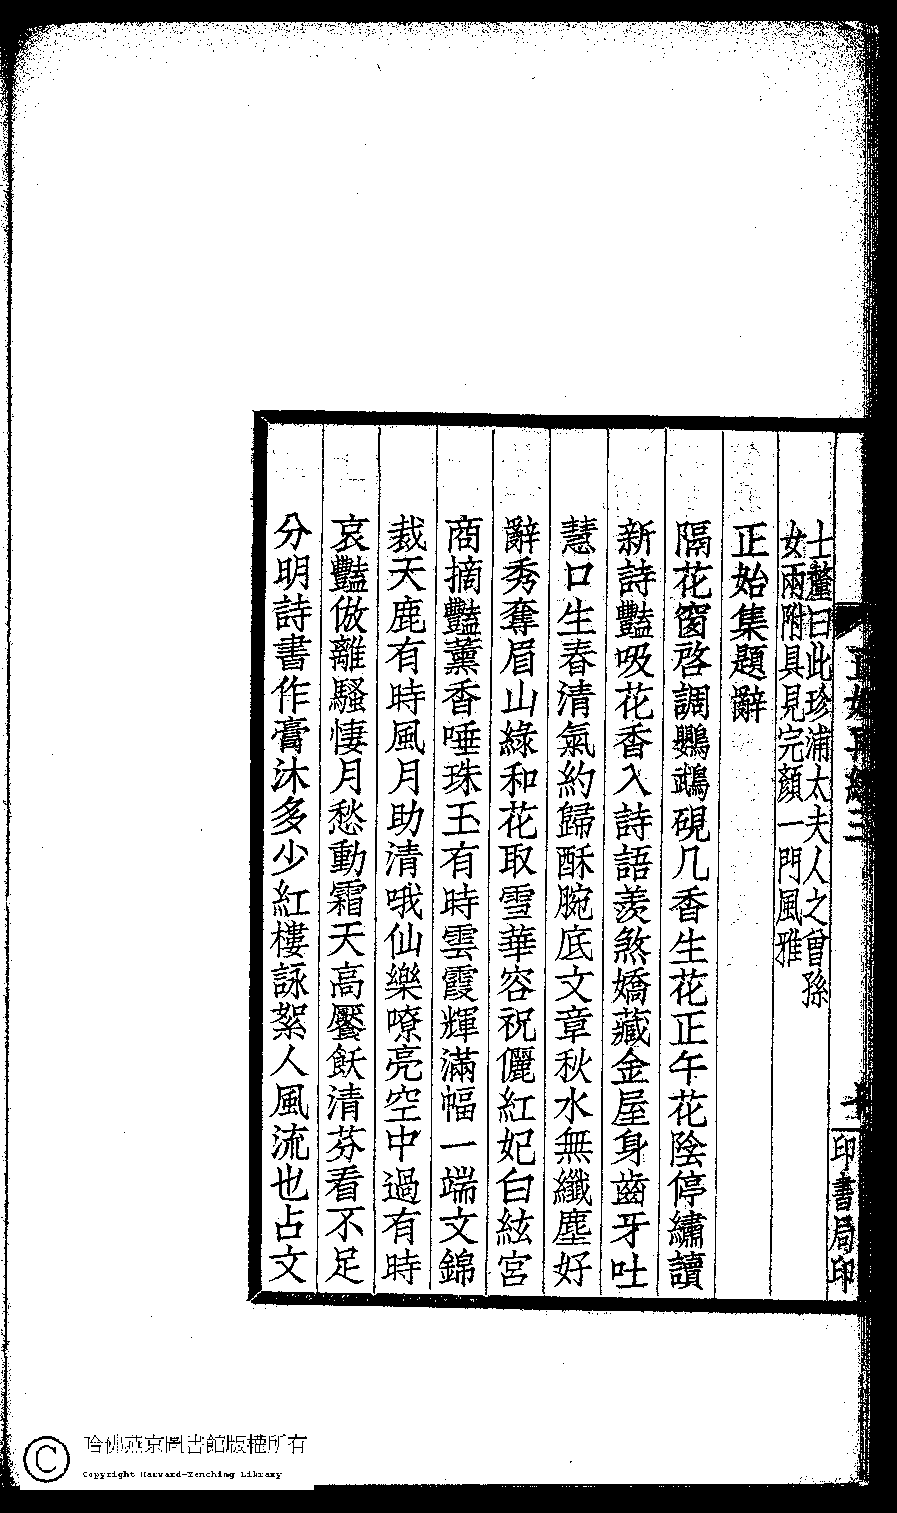 士釐曰此珍浦太夫人之曾孫
女兩附具見完顏一門風雅
正始集題辭
隔花窗啓調鸚鵡硯几香生花正午花陰停繡讀
新詩豔吸花香入詩語羨煞嬌藏金屋身齒牙吐
慧口生春清氣約歸酥腕底文章秋水無纖塵好
辭秀奪眉山綠和花取雪華容祝儷紅妃白絃宮
商摘豔薰香唾珠玉有時雲霞輝滿幅一端文錦
裁天鹿有時風月助清哦仙樂嘹亮空中過有時
哀豔倣離騷悽月愁動霜天高饜飫清芬看不足
分明詩書作膏沐多少紅樓詠絮人風流也占文
印書局印
哈佛燕京圖書館版權所有
Copyright Harvard-Yenching Library